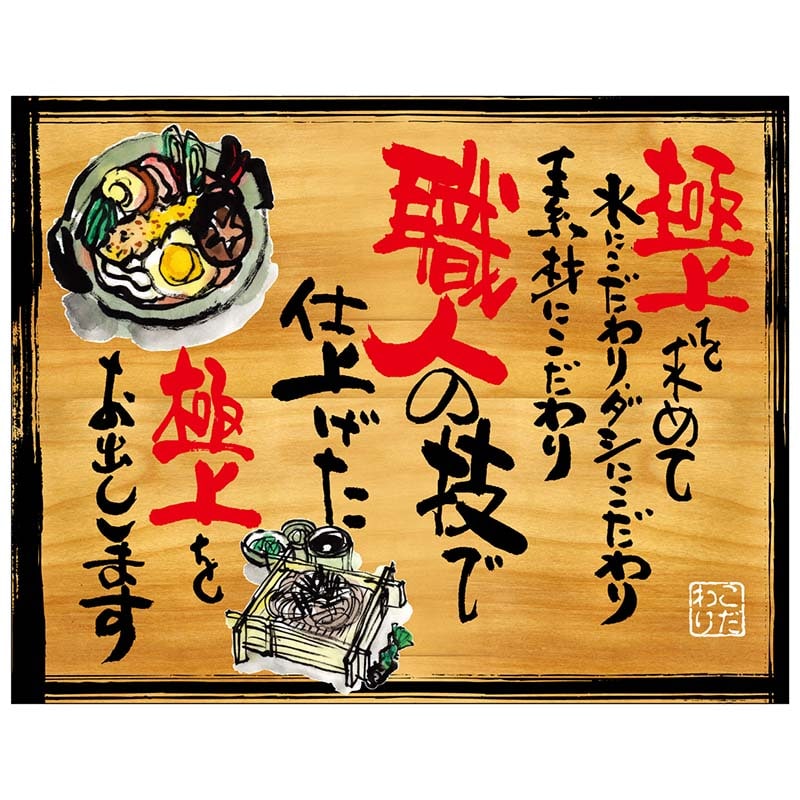 極上を求めて
水にこだわり、ダシにこだわり
素材にこだわり
職人の技で
仕上げた
極上を
お出しします
こだわり